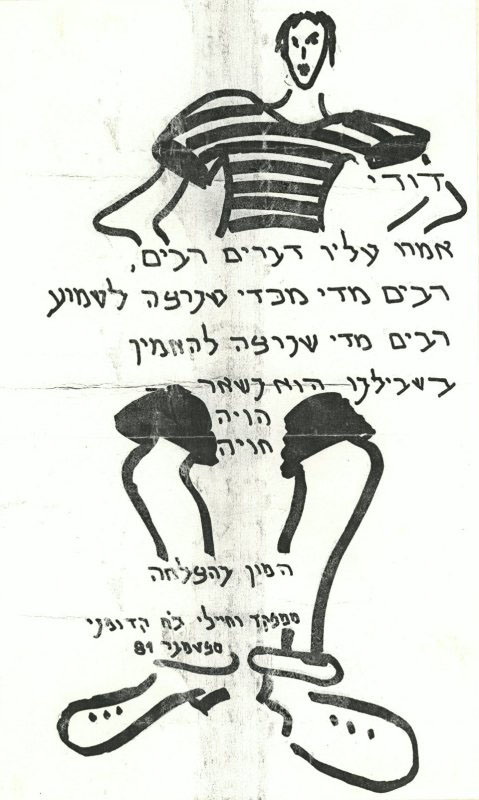 דודי
אמרו עליו דברים רבים,
רבים מדי מכדי שנרצה לשמוע
רבים מדי שנרצה להאמין
בשבילנו הוא נשאר
הויה
חויה
המון בהצלחה
ממפקד וחיילי
ספטמבר 81